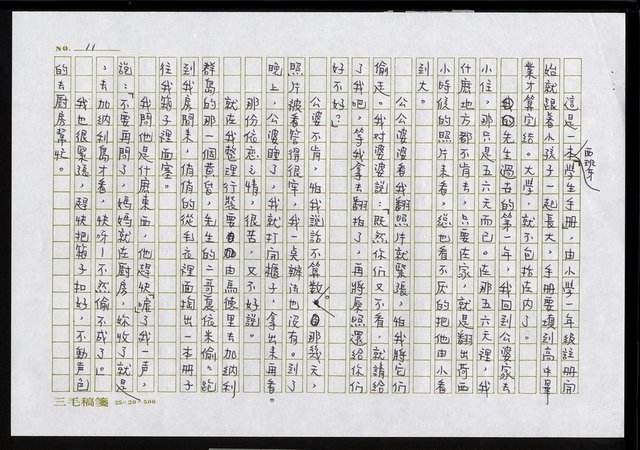 NO. 11
這是一本西班牙學生手冊，由小學一年級註冊開
始就跟着小孩子一起長大，手冊要填到高中畢
業才算完結。大學，就不包括在內了。
我的先生過去的第一年，我回到公婆家去
小住，那只是五六天而已。在那五六天裡，我
什麼地方都不肯去，只要在家，就是翻出荷西
小時候的照片來看，總也看不厭的把他由小看
到大。
公公婆婆看我翻照片就緊張，怕我將它們
偷走。我對婆婆說：「既然你們又不看，就請給
了我吧，等我拿去翻拍了，再將原照還給你們
好不好？」
公婆不肯，怕我說話不算數。那幾天，
照片被看管得很牢，我一點辦法也沒有。到了
晚上，公婆睡了，我就打開櫃子，拿出來再看。
那份依戀之情，很苦，又不好說。
就在我整理行裝要由馬德里去加納利
群島的那一個黃昏，先生的二哥夏依米偷跑
到我房間來，悄悄的從毛衣裡面掏出一本冊子
往我箱子裡面塞。
我問他是什麼東西，他趕快噓了我一聲，
說：「不要再問了，媽媽就在廚房，妳收了就是
，去加納利島才看，快呀！不然偷不成了。」
我也很緊張，趕快把箱子扣好，不動声色
的去厨房幫忙。
三毛稿箋 25×20=500